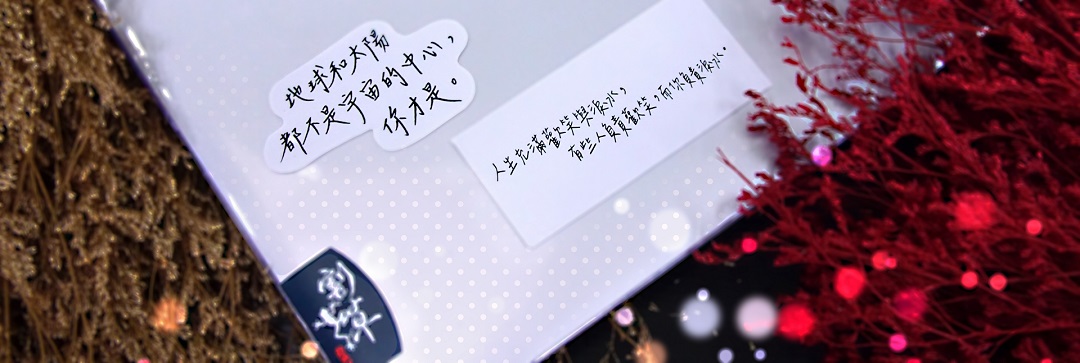 地球和太陽
都不是宇宙的中心，
你才是。
人生充滿歡笑與淚水，
有些人負責歡笑，而你負責淚水。